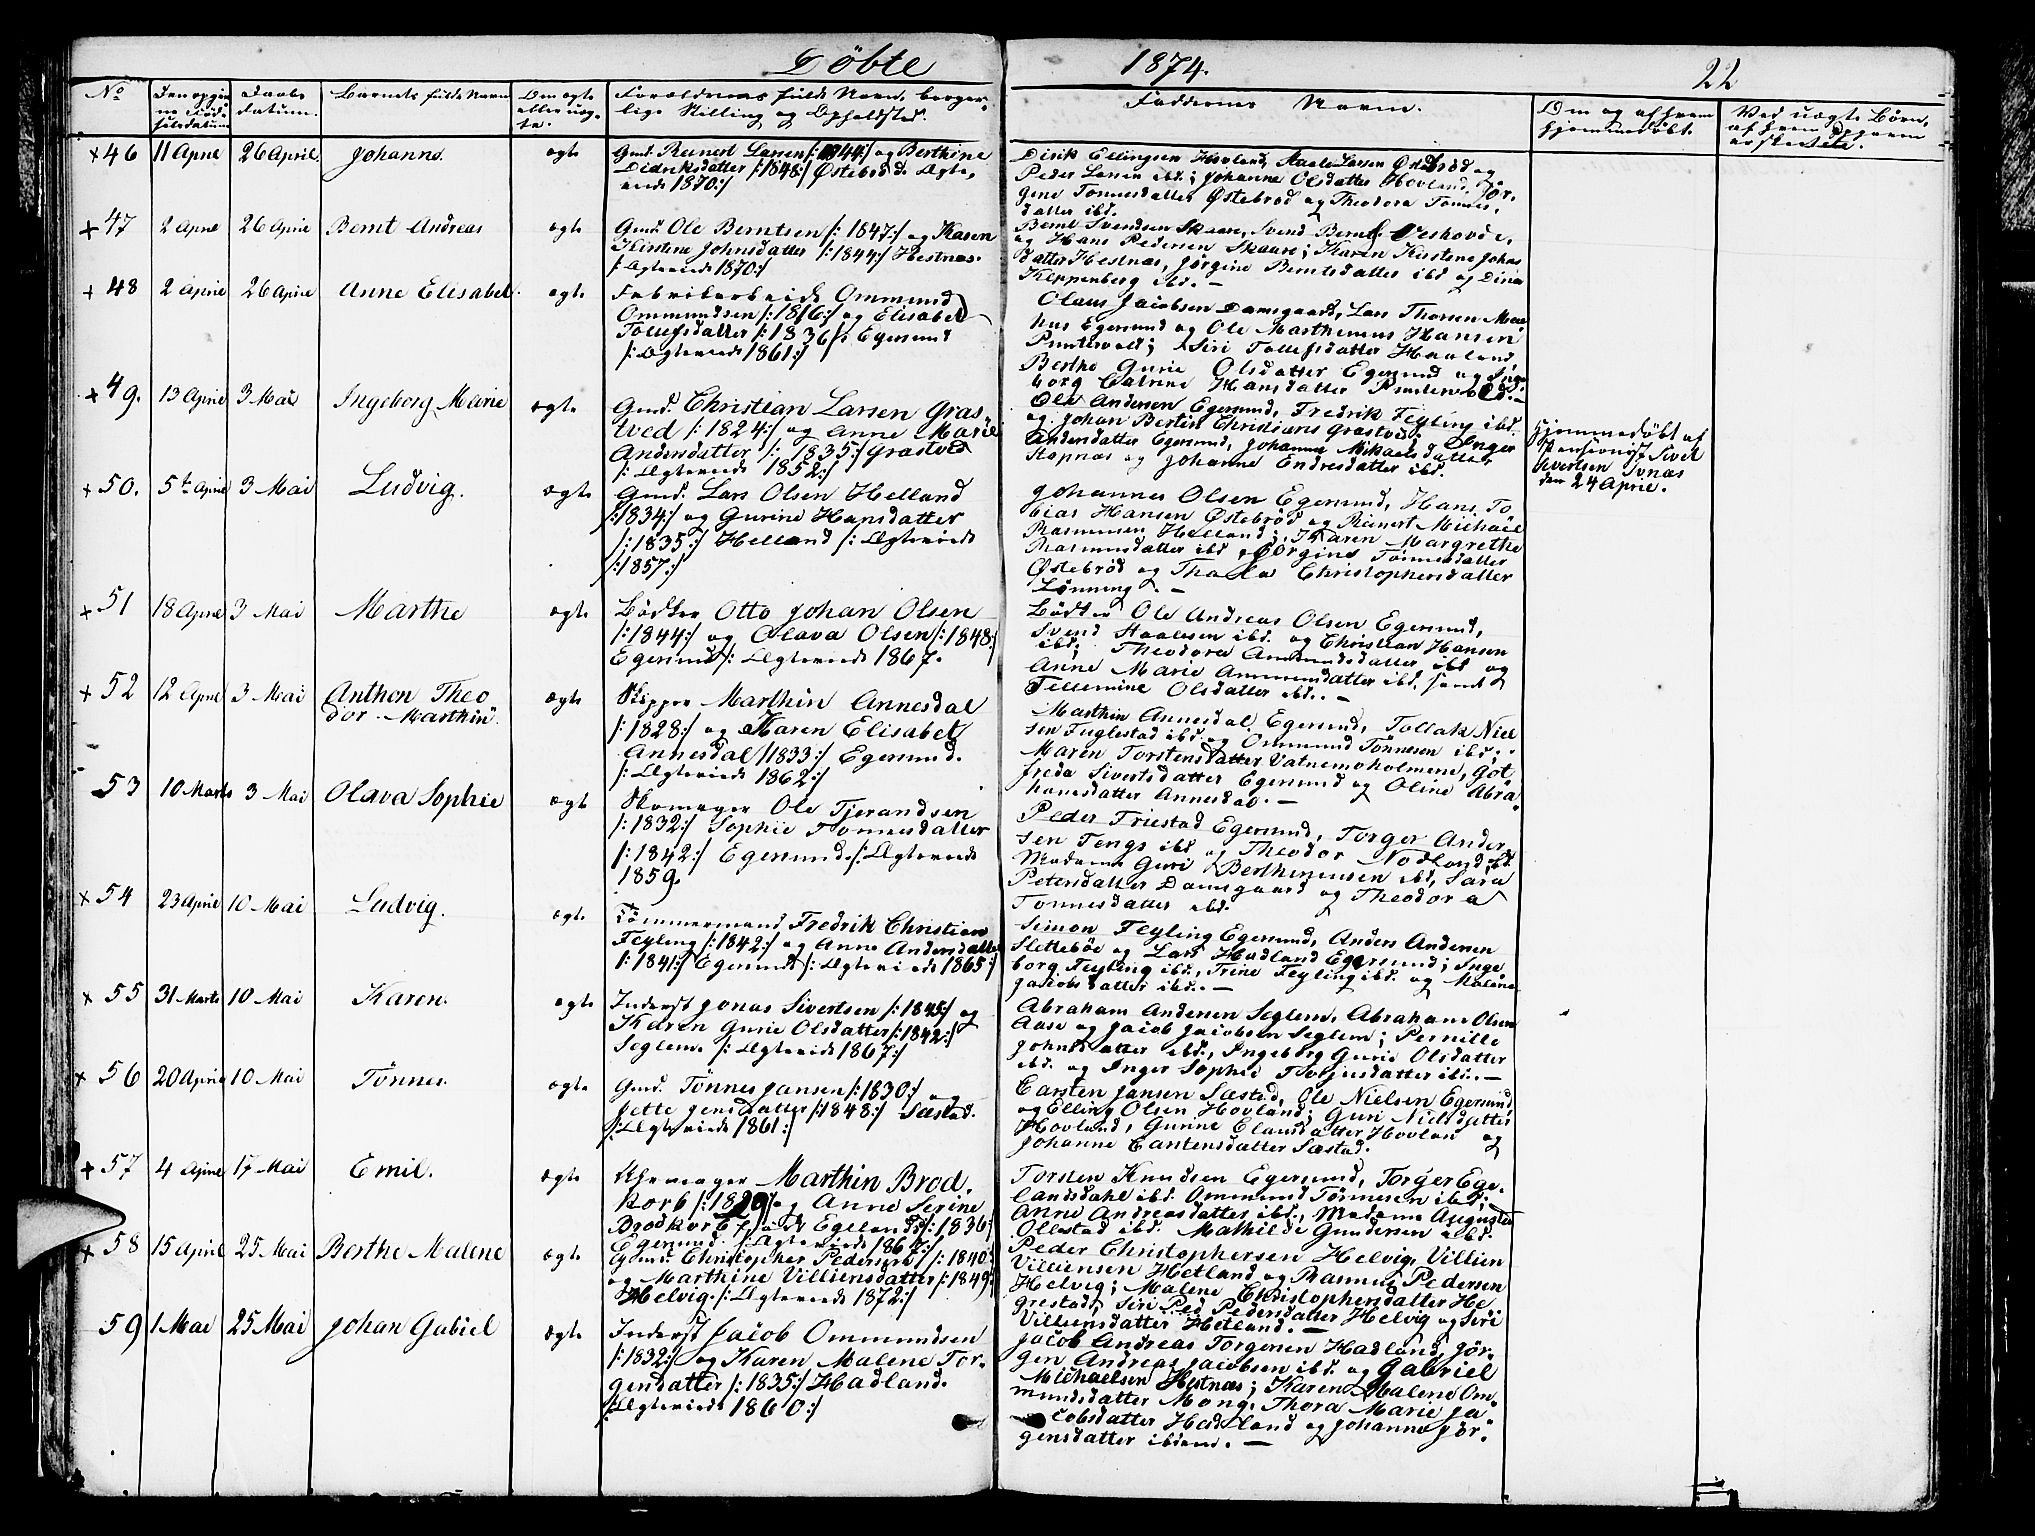 Døbte 1874. 22
No
datum.
Barnets fulde Navn
Om ægte eller uægte.
Forældrenes fulde Navn, borgerlige Stilling og Opholdsted.
Faddernes Navne.
Om og af hvem hjemmedøbt.
+ 46 11 April 26 April. Johanne. ægte
Gmd. Reinert Larsen /:1844:/ og Berthine
Didriksdatter /:1848:/ Østebrød. Ægte,
viede 1870:/
Didrik Ellingsen Hovland, Aale Larsen Østebrød og
Peder Larsen ibd; Johanne Olsdatter Hovland, Jør,
gine Tønnesdatter Østebrød og Theodora Tønnes,
datter ibd.
+ 47 2 April 26 April Bernt Andreas ægte
Gmd. Ole Berntsen /:1847:/ og Karen
Kirstine Johnsdatter /:1844:/ Hestnæs.
/:Ægteviede 1870:/
Bernt Svendsen Skaare, Svend Bernts. Veshovde,
og Hans Pedersen Skaare; Karen Kirstene Johns
datter Hestnæs, Jørgine Berntsdatter ibd og Dina
Keppenberg ibd. —
+ 48 2 April 26 April Anne Elisabet. ægte
Fabrikarbeider Ommund
Ommundsen /:1816:/ og Elisabet
Tollefsdatter /:1836/: Egersund
/:Ægteviede 1861:/
Olaus Jacobsen Damsgaard, Lars Thorsen
hus Egersund og Ole Marthenius Hansen
Puntervold; Siri Tollefsdatter Haaland,
Berthe Gurie Olsdatter Egersund og Inge
borg Catrine Hansdatter Puntervold. —
+ 49. 13 April 3 Mai Ingeborg Marie ægte
Gmd. Christian Larsen Gras,
tved /:1824:/ og Anne Marie
Andersdatter /:1835:/ Grastved
/:Ægteviede 1852:/
Ole Andersen Egersund, Fredrik Feyling ibd.
og Johan Bertin Christians Grastved; Inger
Andersdatter Egersund, Johanne Mikaelsdatter
Stapnæs og Johanne Endresdatter ibd.
Hjemmedøbt af
Pensionist Sivert
Sivertsen
den 24 April.
+ 50. 5te April 3 Mai Ludvig. ægte
Gmd. Lars Olsen Helland
/:1834:/ og Gurine Hansdatter
/:1835:/ Helland /:Ægteviede
/:1857:/
Johannes Olsen Egersund, Hans To
bias Hansen Østebrød og Reinert Michael
Rasmussen Helland; Karen Margrethe
Rasmusdatter ibd, Jørgine Tønnesdatter
Østebrød og Thala Christophersdatter
Lønning. —
+ 51 18 April 3 Mai Marthe ægte
Bødker Otto Johan Olsen
/:1844:/ og Olava Olsen /:1848:/
Egersund /:Ægteviede 1867.
Bødker Ole Andreas Olsen Egersund,
Svend Staalesen ibd. og Christian Hansen
ibd; Theodora Ammundsdatter ibd og
Anne Marie Ammundsdatter ibd. samt
Tellemine Olsdatter ibd. —
+ 52 12 April 3 Mai Anthon Theo
dor Marthin. ægte
Skipper Marthin Annesdal
/:1828:/ og Karen Elisabet
Annesdal /1833:/ Egersund.
/:Ægteviede 1862:/
Marthin Annesdal Egersund, Tollak Niel
sen Fuglestad ibd. og Ommund Tønnesen ibd;
Maren Torstensdatter Vatnemoholmene, Got
freda Sivertsdatter Egersund og Oline Abra
hamsdatter Annesdal. —
53 10 Marts 3 Mai Olava Sophie ægte
Skomager Ole Tjerandsen
/:1832:/ Sophie Tønnesdatter
/:1842:/ Egersund. /:Ægteviede
1859.
Peder Friestad Egersund, Torger Ander
sen Tengs ibd og Theodor Nodland ibd.
Madame Guri Berthinusen ibd, Sara
Petersdatter Damsgaard og Theodora
Tønnesdatter ibd.
+ 54 23 April 10 Mai Ludvig. ægte
Tømmermand Fredrik Christian
Feyling /:1842:/ og Anne Andersdatter
/:1841:/ Egersund /:Ægteviede 1865:/
Simon Feyling Egersund, Anders Andersen
Slettebøe og Lars Hadland Egersund; Inge
borg Feyling ibd., Trine Feyling ibd. og Malene
Jacobsdatter ibd. —
+ 55 31 Marts 10 Mai Karen. ægte
Inderst Jonas Sivertsen /:1845:/ og
Karen Gurie Olsdatter /:1842:/
Seglem. /:Ægteviede 1867:/
Abraham Andersen Seglem, Abraham Olsen
Aase og Jacob Jacobsen Seglem; Pernille
Johnsdatter ibd., Ingeborg Gurie Olsdatter
ibd. og Inger Sophie Torjusdatter ibd. —
+ 56 20 April 10 Mai Tønnes. ægte
Gmd. Tønnes Jansen /:1830:/ og
Jette Jensdatter /:1848:/ Sæstad.
/:Ægteviede 1861:/
Carsten Jansen Sæstad, Ole Nielsen Egersund
og Elling Olsen Hovland; Guri Nielsdatter
Hovland, Gunne Elausdatter Hovlan og
Johanne Carstensdatter Sæstad.
+ 57 4 April 17 Mai Emil. ægte
Skomager Marthin Brod,
korb /:1829/ og Anne Serine
Brodkorb født Egelands /:1836:/
Egersund. /:Ægteviede 1867:/
Torsten Knudsen Egersund, Torger Ege,
landsdahl ibd. Ommund Tønnesen ibd;
Anne Andreasdatter ibd., Madame Augusta
Ollestad ibd. Mathilde Gundersen ibd.
+ 58 15 April 25 Mai Berthe Malene ægte
Gmd. Christopher Pedersen /:1840:/
og Marthine Villiensdatter /:1849:/
Helvig. /:Ægteviede 1872:/
Peder Christophersen Helvig, Villien
Villiensen Hetland og Rasmus Pedersen
Helvig; Malene Christophersdatter He
grestad, Siri Ped Pedersdatter Helvig og Siri
Villiensdatter Hetland. —
59 1 Mai 25 Mai Johan Gabriel ægte
Inderst Jacob Ommundsen
/:1832:/ og Karen Malene Tor,
gersdatter /:1835:/ Hadland.
/:Ægteviede 1860:/
Jacob Andreas Torgersen Hadland, Jør,
gen Andreas Jacobsen ibd. og Gabriel
Michaelsen Hestnæs; Karen Malene Om,
mundsdatter Mong, Thora Marie Ja,
cobsdatter Hadland og Johanne Jør,
gensdatter ibidem. —